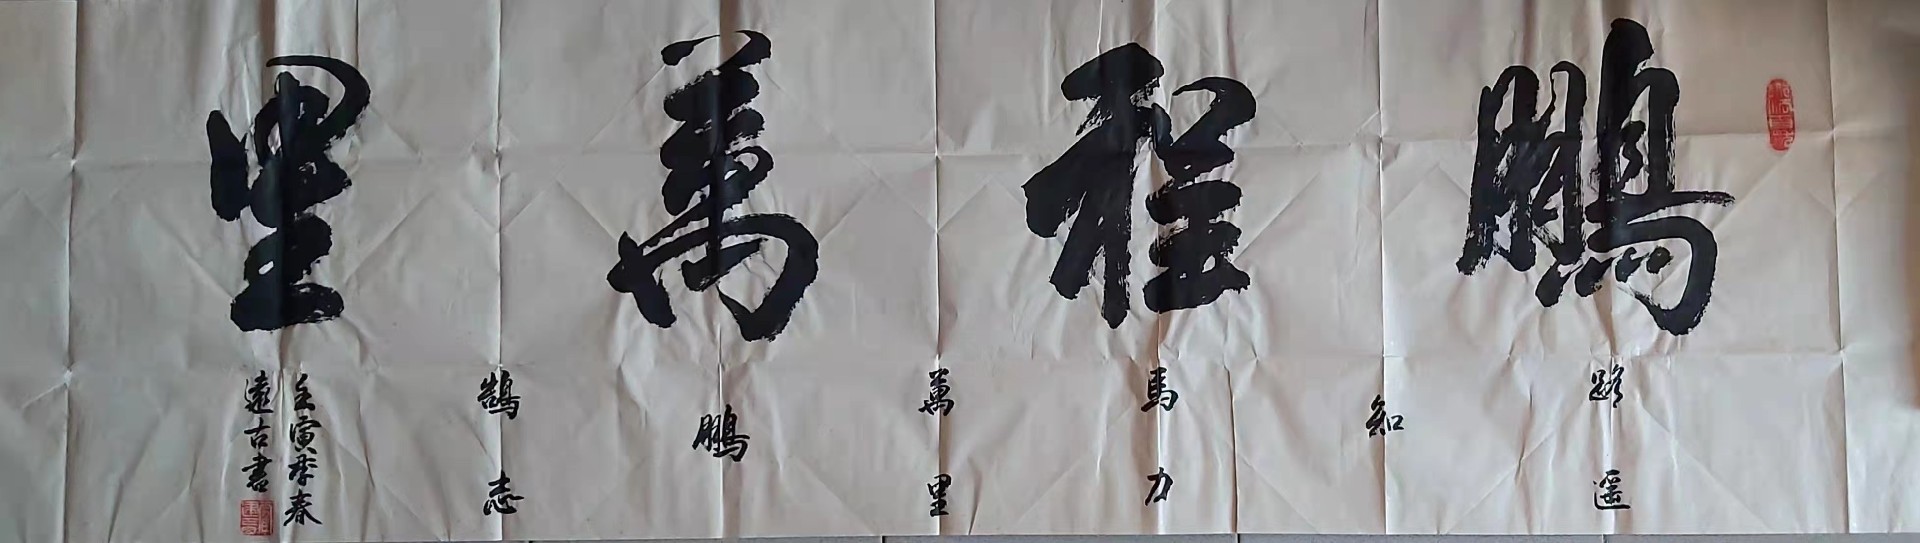 鵬程萬里
路遥
知
馬力
萬里
鵬
鵠志
壬寅季春
遠古書